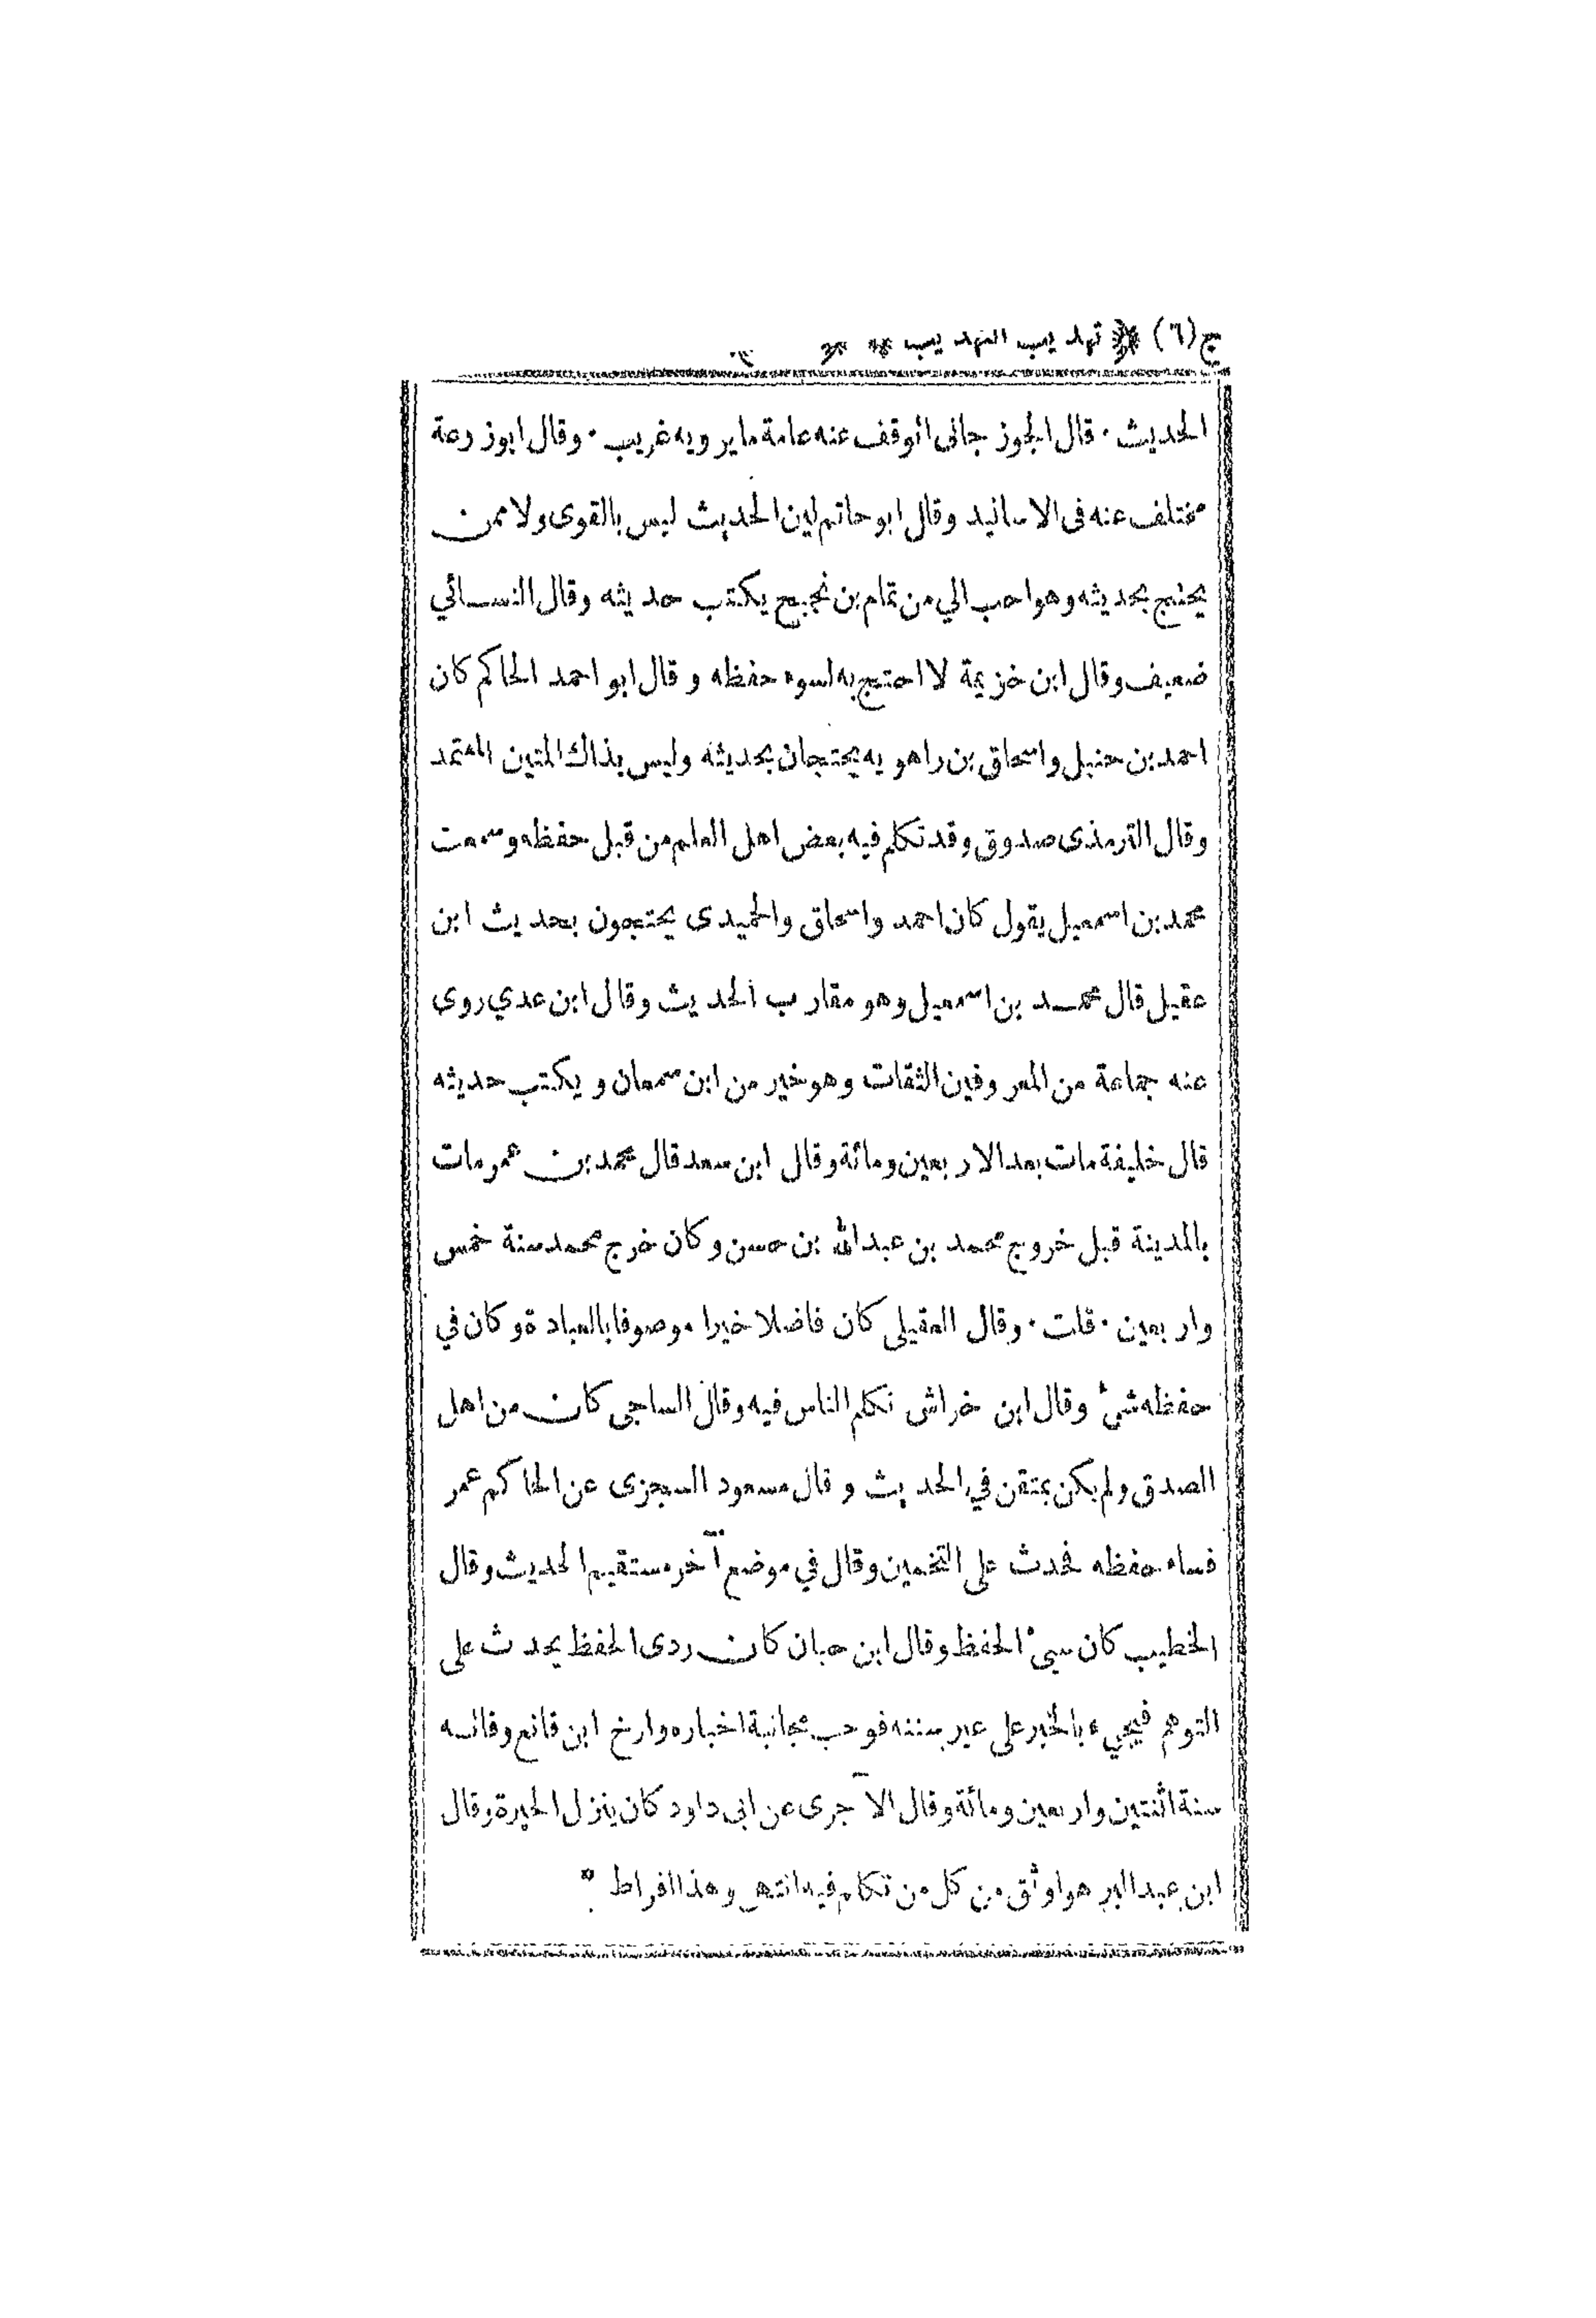 ج(٦) تهذيب التهذيب
الحديث · قال الجوزجانى اتوقف عنه عامة مايرويه غريب · وقال ابوزرعة
مختلف عنه فى الاسانيد وقال ابو حاتم لين الحديث ليس بالقوى ولا ممن
يحتج بحديثه وهو احب الي من تمام بن نجيح يكتب حديثه وقال النسائي
ضعيف وقال ابن خزيمة لا احتج به لسوء حفظه وقال ابو احمد الحاكم كان
احمد بن حنبل واسحاق بن راهويه يحتجان بحديثه وليس بذاك المتين المعتمد
وقال الترمذى صدوق وقد تكلم فيه بعض اهل العلم من قبل حفظه وسمعت
محمد بن اسمعيل يقول كان احمد واسحاق والحميدى يحتجون بحديث ابن
عقيل قال محمد بن اسمعيل وهو مقارب الحديث وقال ابن عدي روى
عنه جماعة من المعروفين الثقات وهو خير من ابن سمعان ويكتب حديثه
قال خليفة مات بعد الاربعين ومائة وقال ابن سعد قال محمد بن عمر مات
بالمدينة قبل خروج محمد بن عبدالله بن حسن وكان خرج محمد سنة خمس
واربعين · قلت · وقال العقيلى كان فاضلا خيرا موصوفا بالعبادة وكان في
حفظه شئ وقال ابن خراش تكلم الناس فيه وقال الساجى كان من اهل
الصدق ولم يكن بمتقن في الحديث وقال مسعود السجزى عن الحاكم عمر
فساء حفظه فحدث على التخمين وقال في موضع آخر مستقيم الحديث وقال
الخطيب كان سيئ الحفظ وقال ابن حبان كان ردى الحفظ يحدث على
التوهم فيجيء بالخبر على غير سننه فوجب مجانبة اخباره وارخ ابن قانع وفاته
سنة اثنتين واربعين ومائة وقال الآجرى عن ابى داود كان ينزل الحيرة وقال
ابن عبد البر هو اوثق من كل من تكلم فيه انتهى وهذا افراط